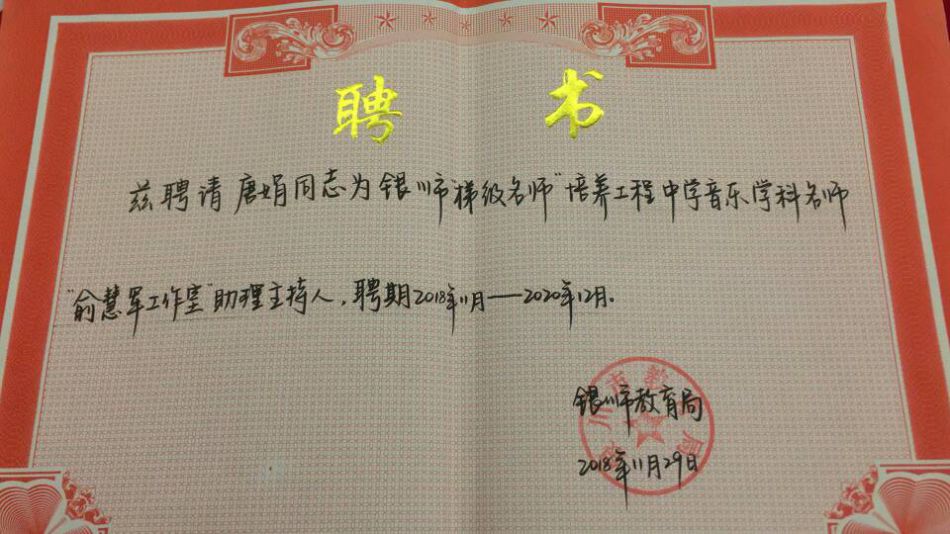 聘 书
兹聘请唐娟同志为银川市“梯级名师”培养工程中学音乐学科名师
“俞慧军工作室”助理主持人，聘期2018年11月——2020年12月.
银川市教育局
2018年11月29日